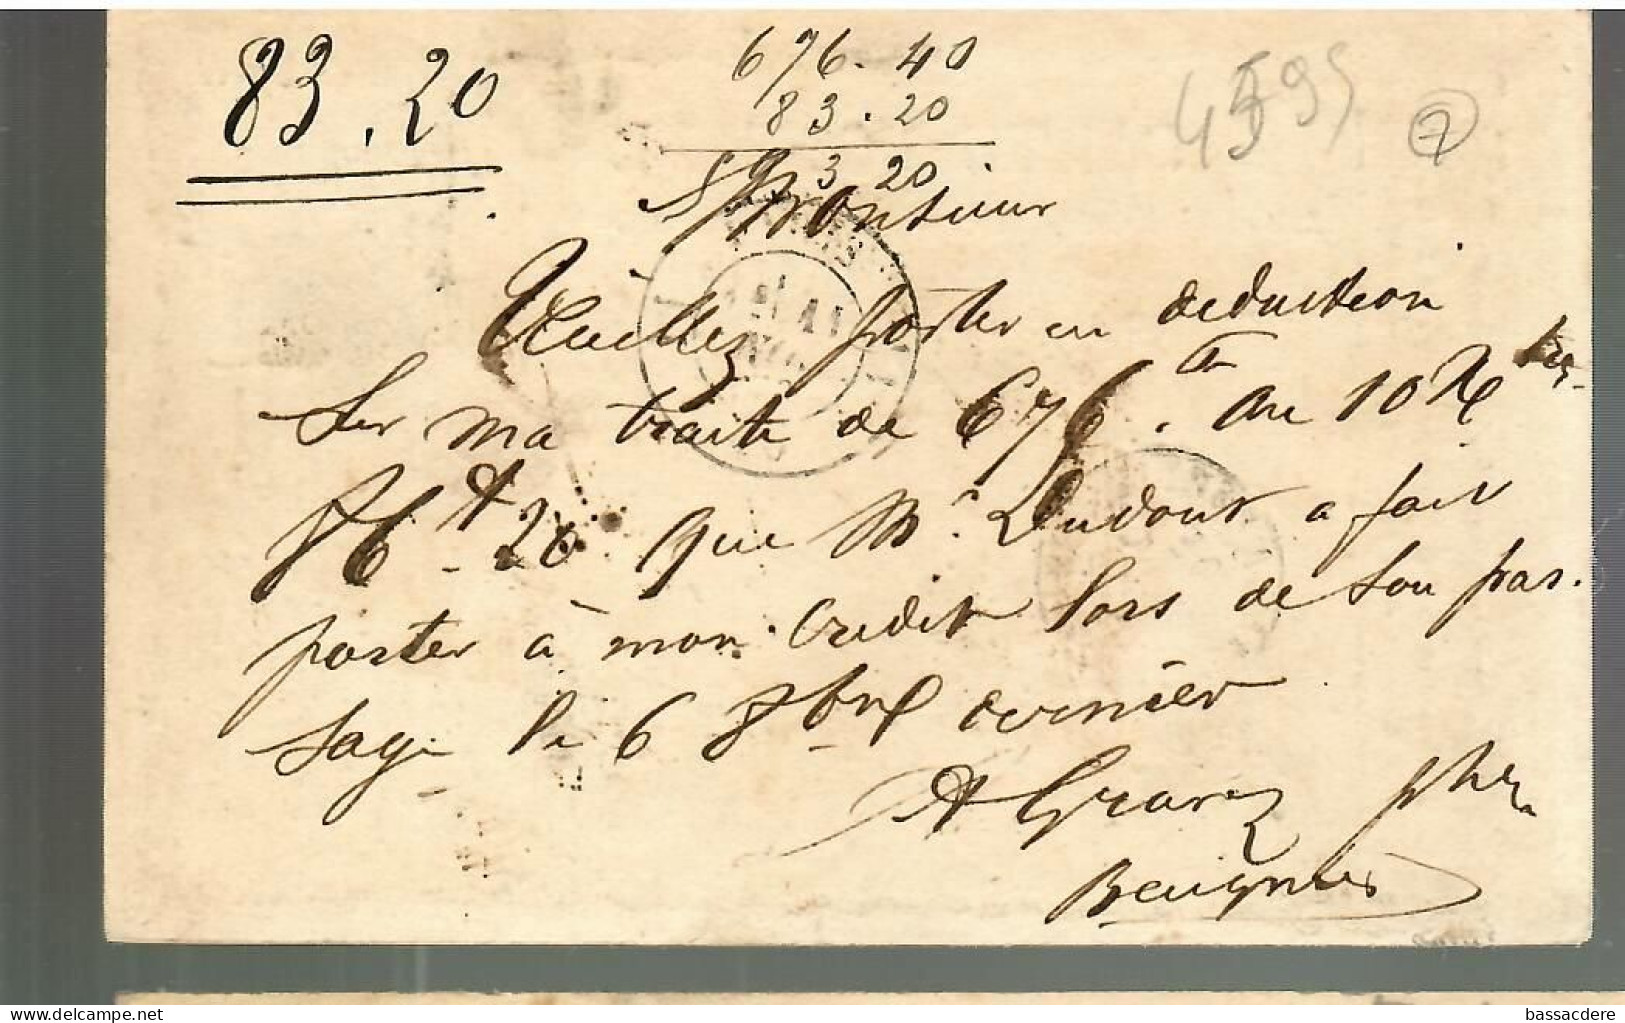 83.20
676.40
83.20
593 20
4595
7
Monsieur
Veuillez porter en deduction
sur ma traite de 676. au 10 Xbre
86 20 que Mr. Dudout a fait
porter à mon credit lors de son pas.
sage le 6 8bre dernier
A Gravez phen
Beaignies
bassacdere